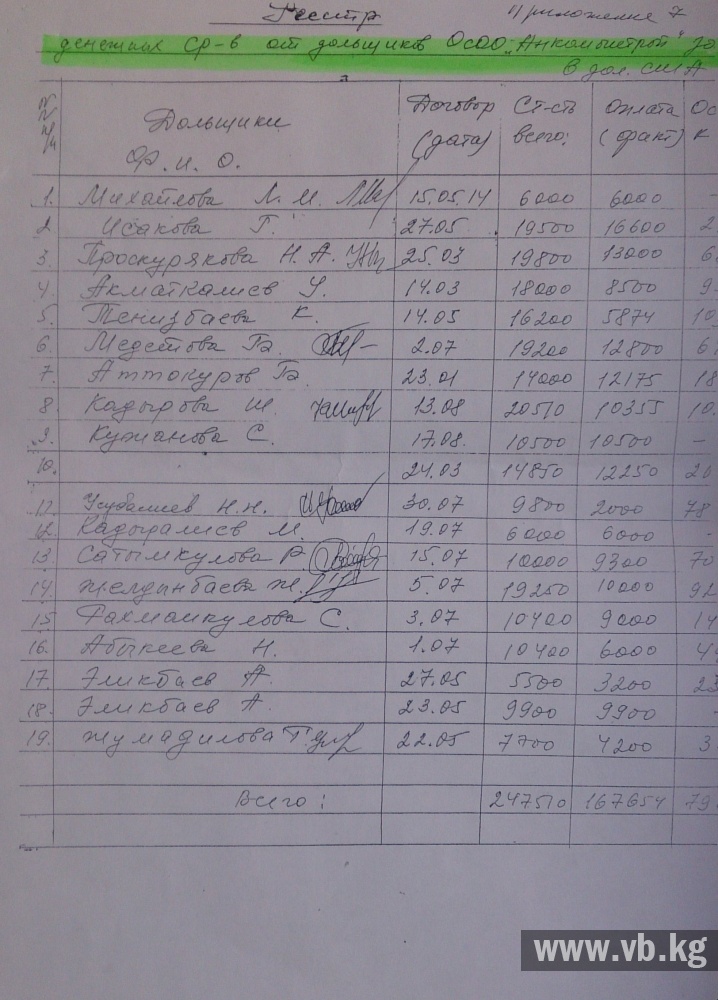 Реестр Приложение 7
денежных ср-в от дольщиков ОсОО "Анкомыстрой" за
в дол. США
№ п/п Дольщики Ф.И.О. Договор (дата) Ст-сть всего: Оплата (факт) Ос к
1. Михайлова Л. И. 15.05.14 6000 6000 -
2. Исакова Г. 27.05 19500 16600 2
3. Проскурякова Н. А. 25.03 19800 13000 6
4. Акматкалиев У. 14.03 18000 8500 9
5. Тенизбаева К. 14.05 16200 5874 10
6. Медетова Б. 2.07 19200 12800 6
7. Аттокуров Б. 23.01 14000 12175 18
8. Кадырова Ш. 13.08 20510 10355 10.
9. Кужанова С. 17.08. 10500 10500 -
10. 24.03 14850 12250 20
11. Усубалиев Н.Н. 30.07 9800 2000 78
12. Кадыралиев М. 19.07 6000 6000 -
13. Сатымкулова Р. 15.07 10000 9300 70
14. Желдинбаева Ж. 5.07 19250 10000 92
15. Рахманкулова С. 3.07 10400 9000 14
16. Абыкеева Н. 1.07 10400 6000 4
17. Эликбаев А. 27.05 5500 3200 23
18. Эликбаев А. 23.05 9900 9900 -
19. Жумадилова Г. 22.05 7700 4200 3
Всего: 247510 167654 79
www.vb.kg